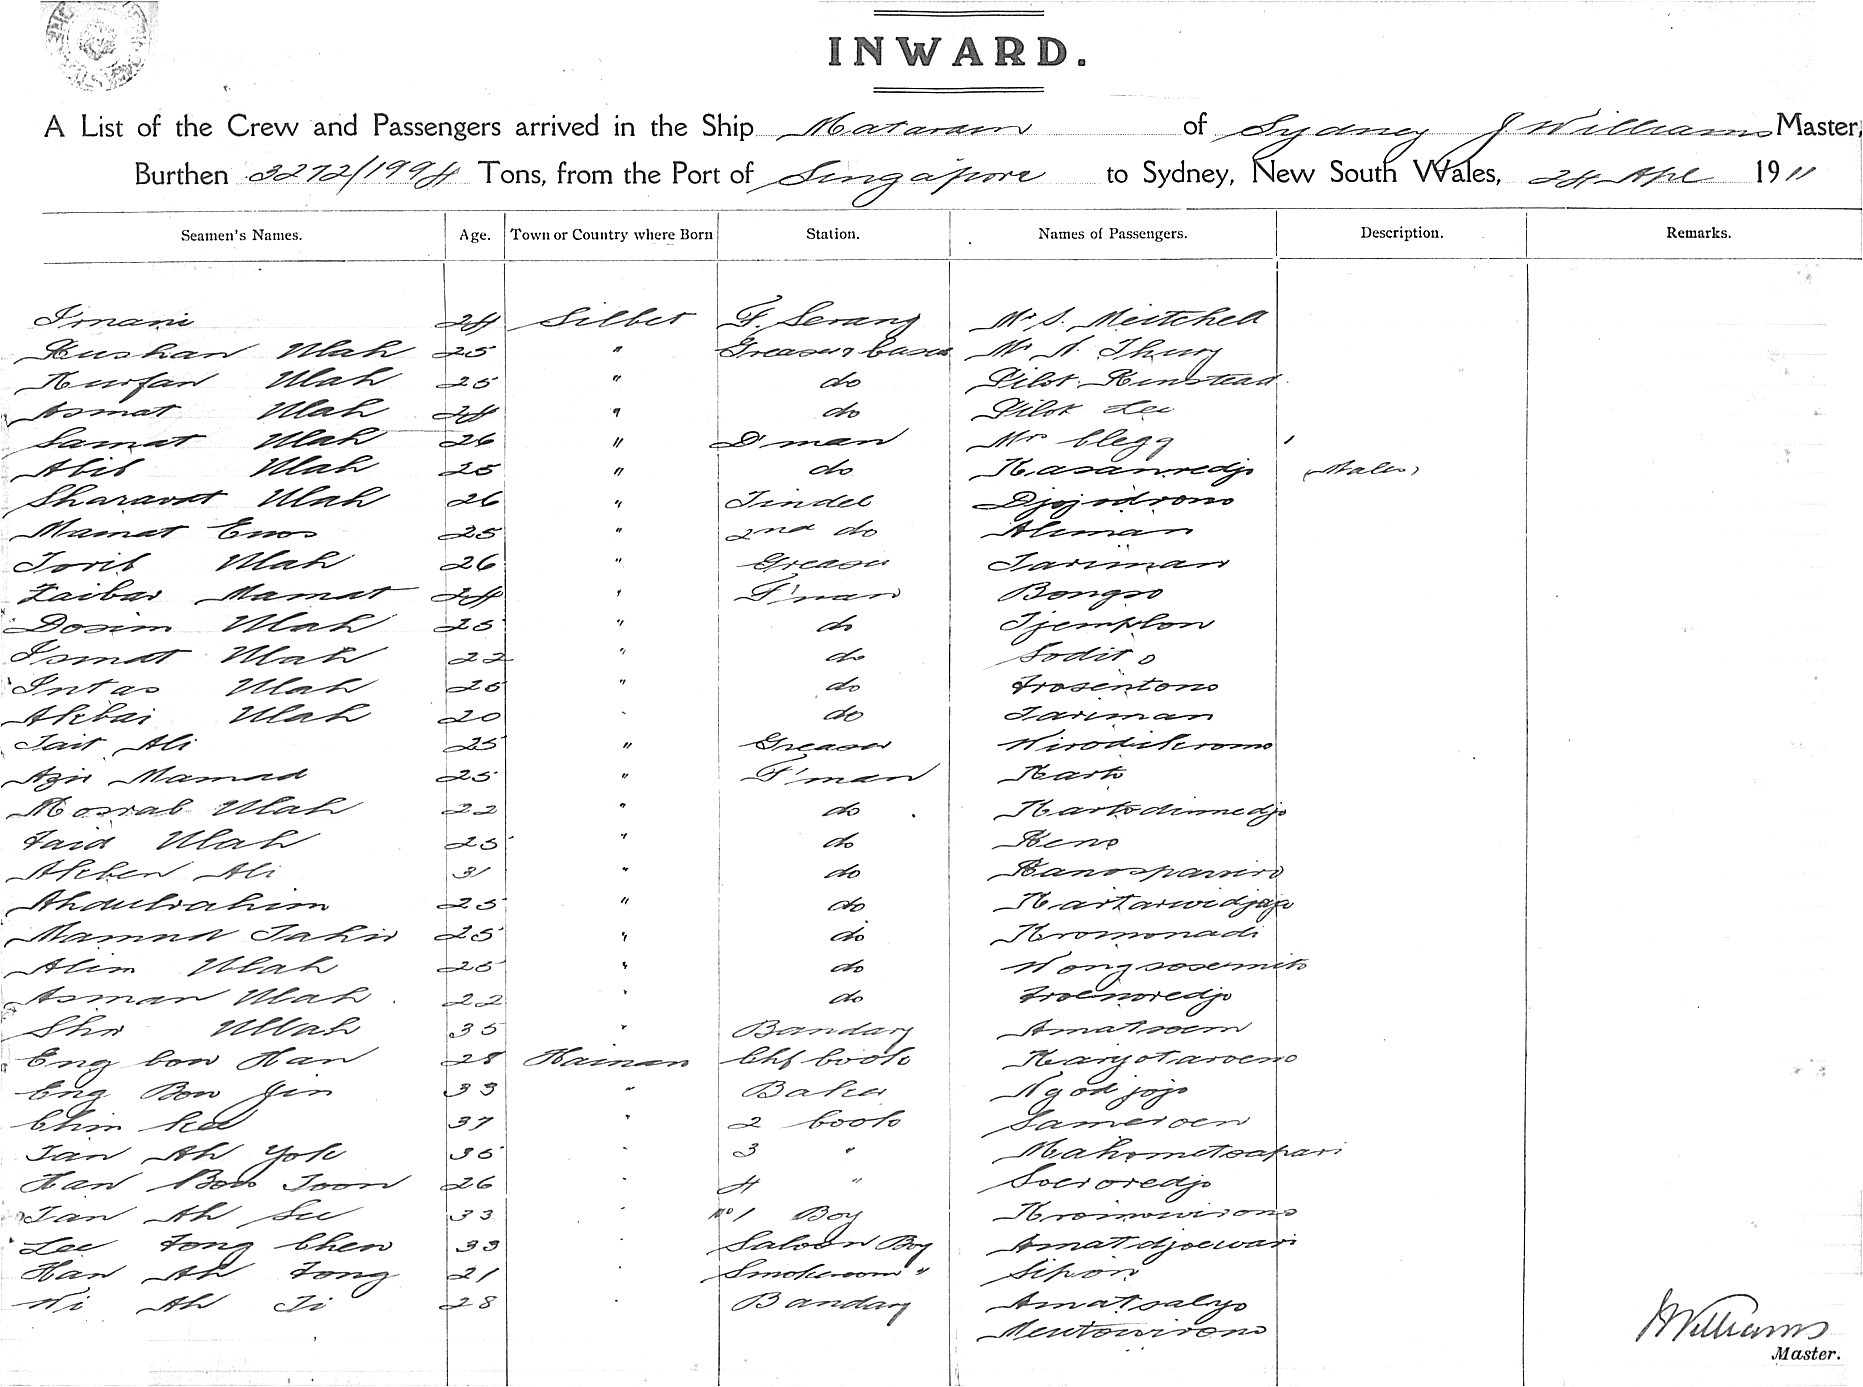 INWARD.
A List of the Crew and Passengers arrived in the Ship Mataram of Sydney J Williams Master,
Burthen 3272/1994 Tons, from the Port of Singapore to Sydney, New South Wales, 24 Apl 1911
Seamen's Names. Age. Town or Country where Born Station. Names of Passengers. Description. Remarks.
Imani 24 Silhet F. Serang Mr S. Meitchell
Kushan Ulah 25 " Mr A. Thury
Kurfan Ulah 25 " do Pilot Kinstead
Asmat Ulah 24 " do Pilot Lee
Samat Ulah 26 " D'man Mr Clegg
Abib Ulah 25 " do Kasanredjo (Males)
Sharavat Ulah 26 " Tindel Djojodrono
Mamat Enos 25 " 2nd do Aliman
Torib Ulah 26 " Greaser Tariman
Zaibar Mamat 24 " F'man Bongso
Dosim Ulah 25 " do Tjemplon
Ismat Ulah 22 " do Sodito
Intas Ulah 25 " do Trosentono
Akbai Ulah 20 do Tariman
Tait Ali 25 " Greaser Wirodikromo
Azir Mamad 25 " F'man Karto
Mosrab Ulah 22 " do Kartodimedjo
Faid Ulah 25 " do Keno
Akben Ali 31 " do
Abdulrahim 25 " do Kartawidjaja
Mamud Tahir 25 " do Kromonadi
Alim Ulah 25 " do Wongsosemito
Asman Ulah 22 " do Troenoredjo
Shr Ullah 35 " Bandary Amatsoem
Eng Cow Han 28 Hainan Chf Cook Karjotaroeno
Eng Bow Jin 33 " Baker Ngodjojo
Chim Ked 37 " 2 Cook Sameroen
Tan Ah Yok 35 3 " Mahometsapari
Han Bow Toon 26 4 " Soeroredjo
Tan Ah See 33 No 1 Boy Kromowirono
Lee Fong Chew 33 Saloon Boy Amatdjoewari
Han Ah Fong 21 Smokeroom " Sipon
Wi Ah Ti 28 Bandary Amatsalyo
Mentowirono
J Williams
Master.